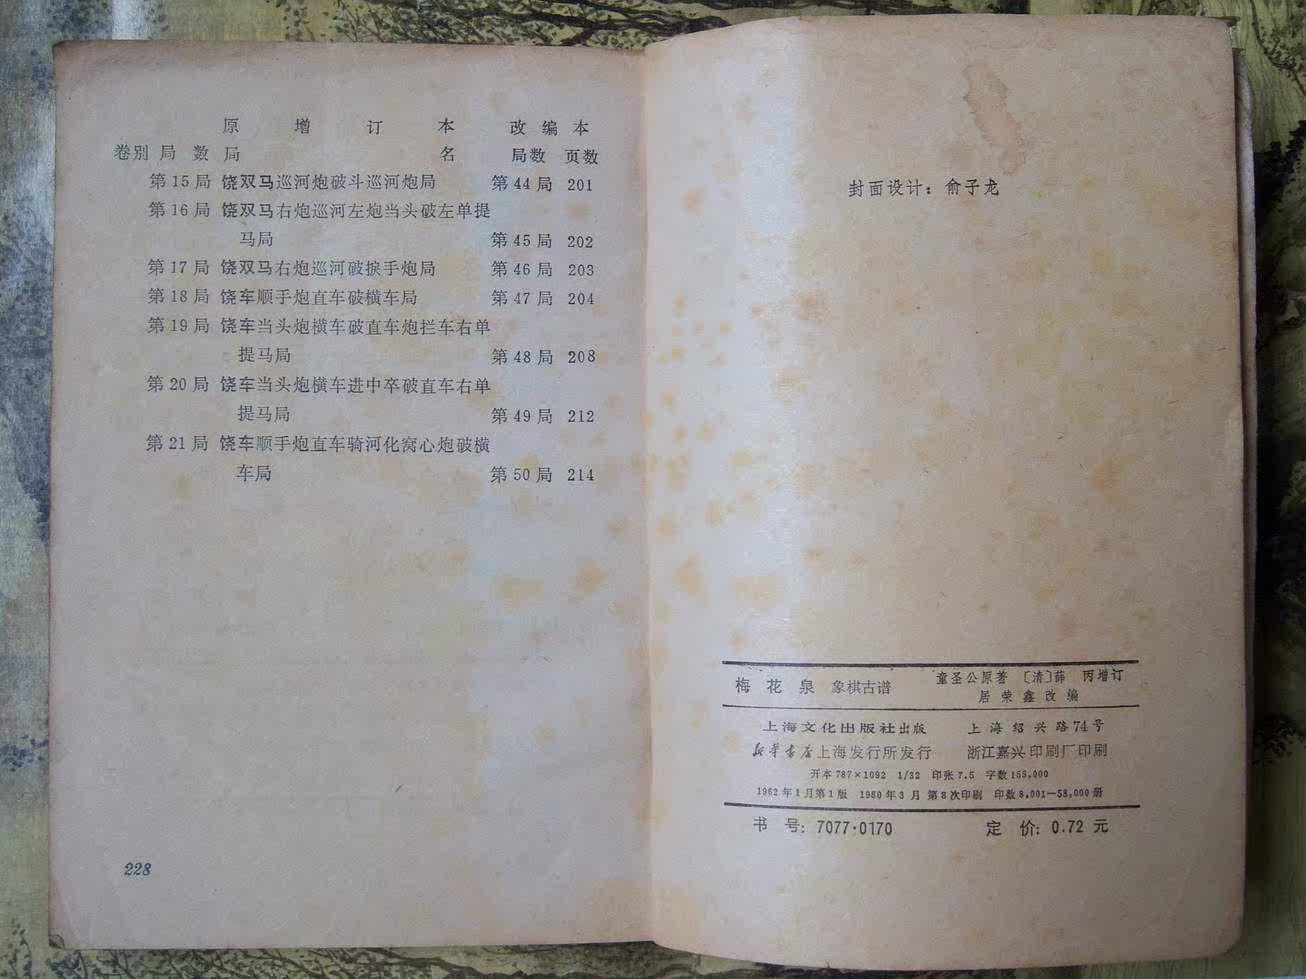 原 增 订 本 改 编 本
卷别 局 数 局 名 局数 页数
第15局 饶双马巡河炮破斗巡河炮局 第44局 201
第16局 饶双马右炮巡河左炮当头破左单提
马局 第45局 202
第17局 饶双马右炮巡河破捩手炮局 第46局 203
第18局 饶车顺手炮直车破横车局 第47局 204
第19局 饶车当头炮横车破直车炮拦车右单
提马局 第48局 208
第20局 饶车当头炮横车进中卒破直车右单
提马局 第49局 212
第21局 饶车顺手炮直车骑河化窝心炮破横
车局 第50局 214
228
封面设计：俞子龙
梅 花 泉 象棋古谱
童圣公原著 〔清〕薛 丙增订
居 荣 鑫 改 编
上海文化出版社出版 上 海 绍 兴 路 74 号
新华书店上海发行所发行 浙江嘉兴印刷厂印刷
开本 787×1092 1/32 印张 7.5 字数 155,000
1962年1月第1版 1980年3月 第8次印刷 印数 8,001—58,000册
书 号: 7077·0170 定 价: 0.72 元